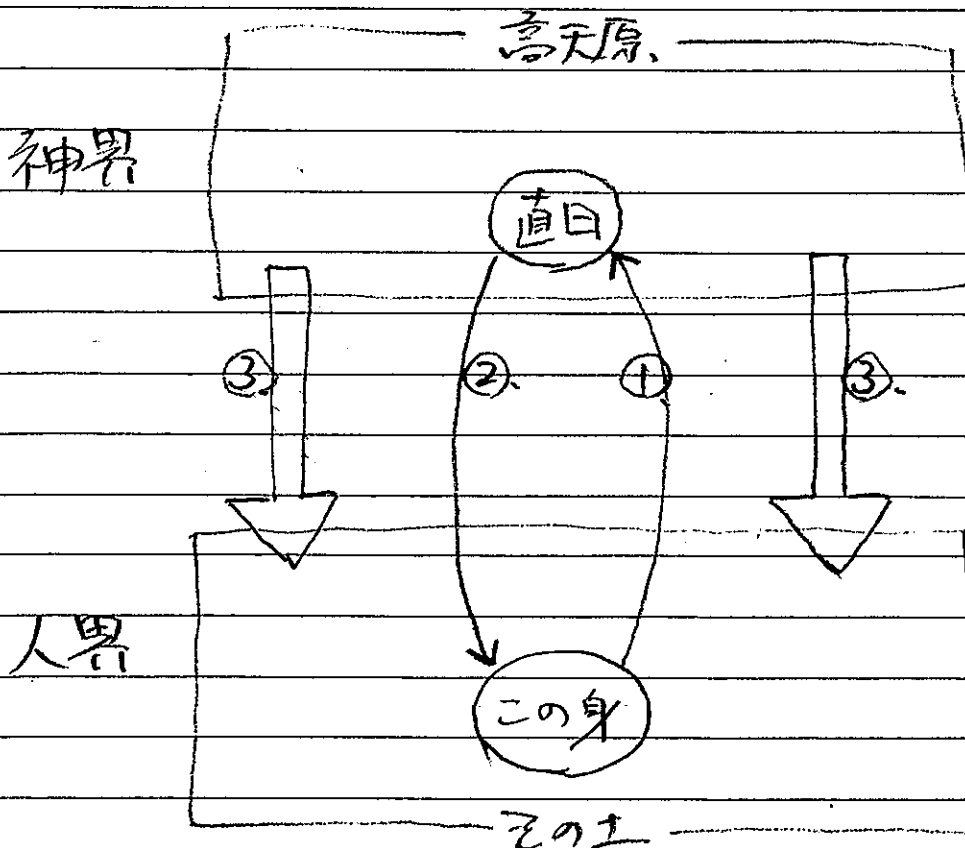 高天原、
神界
直日
③、 ②、 ①、 ③、
人界
この身
その土